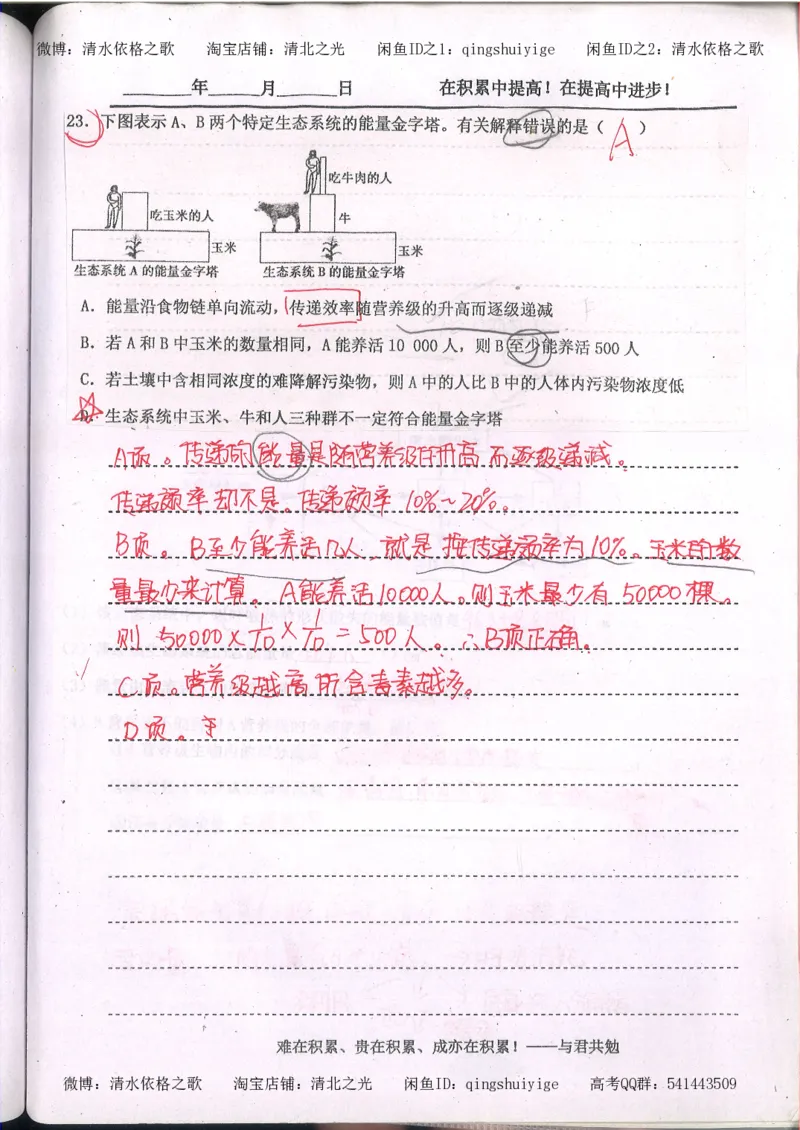 微博：清水依格之歌 淘宝店铺：清北之光 闲鱼ID之1：qingshuiyige 闲鱼ID之2：清水依格之歌
______年_____月______日 在积累中提高！在提高中进步！
23．下图表示 A、B 两个特定生态系统的能量金字塔。有关解释错误的是（ A ）
吃牛肉的人
吃玉米的人 牛
玉米 玉米
生态系统 A 的能量金字塔 生态系统 B 的能量金字塔
A．能量沿食物链单向流动，传递效率随营养级的升高而逐级递减
B．若 A 和 B 中玉米的数量相同，A 能养活 10 000 人，则 B 至少能养活 500 人
C．若土壤中含相同浓度的难降解污染物，则 A 中的人比 B 中的人体内污染物浓度低
D．生态系统中玉米、牛和人三种群不一定符合能量金字塔
A项。传递的能量是随营养级的升高而逐级递减。
传递效率却不是。传递效率 10%～20%。
B项。B至少能养活几人，就是按传递效率为10%。玉米的数
量最少来计算。A能养活10000人。则玉米最少有 50000 棵。
则 50000×1/10×1/10=500人。∴B项正确。
C项。营养级越高所含毒素越多。
D项。
难在积累、贵在积累、成亦在积累！——与君共勉
微博：清水依格之歌 淘宝店铺：清北之光 闲鱼ID：qingshuiyige 高考QQ群：541443509